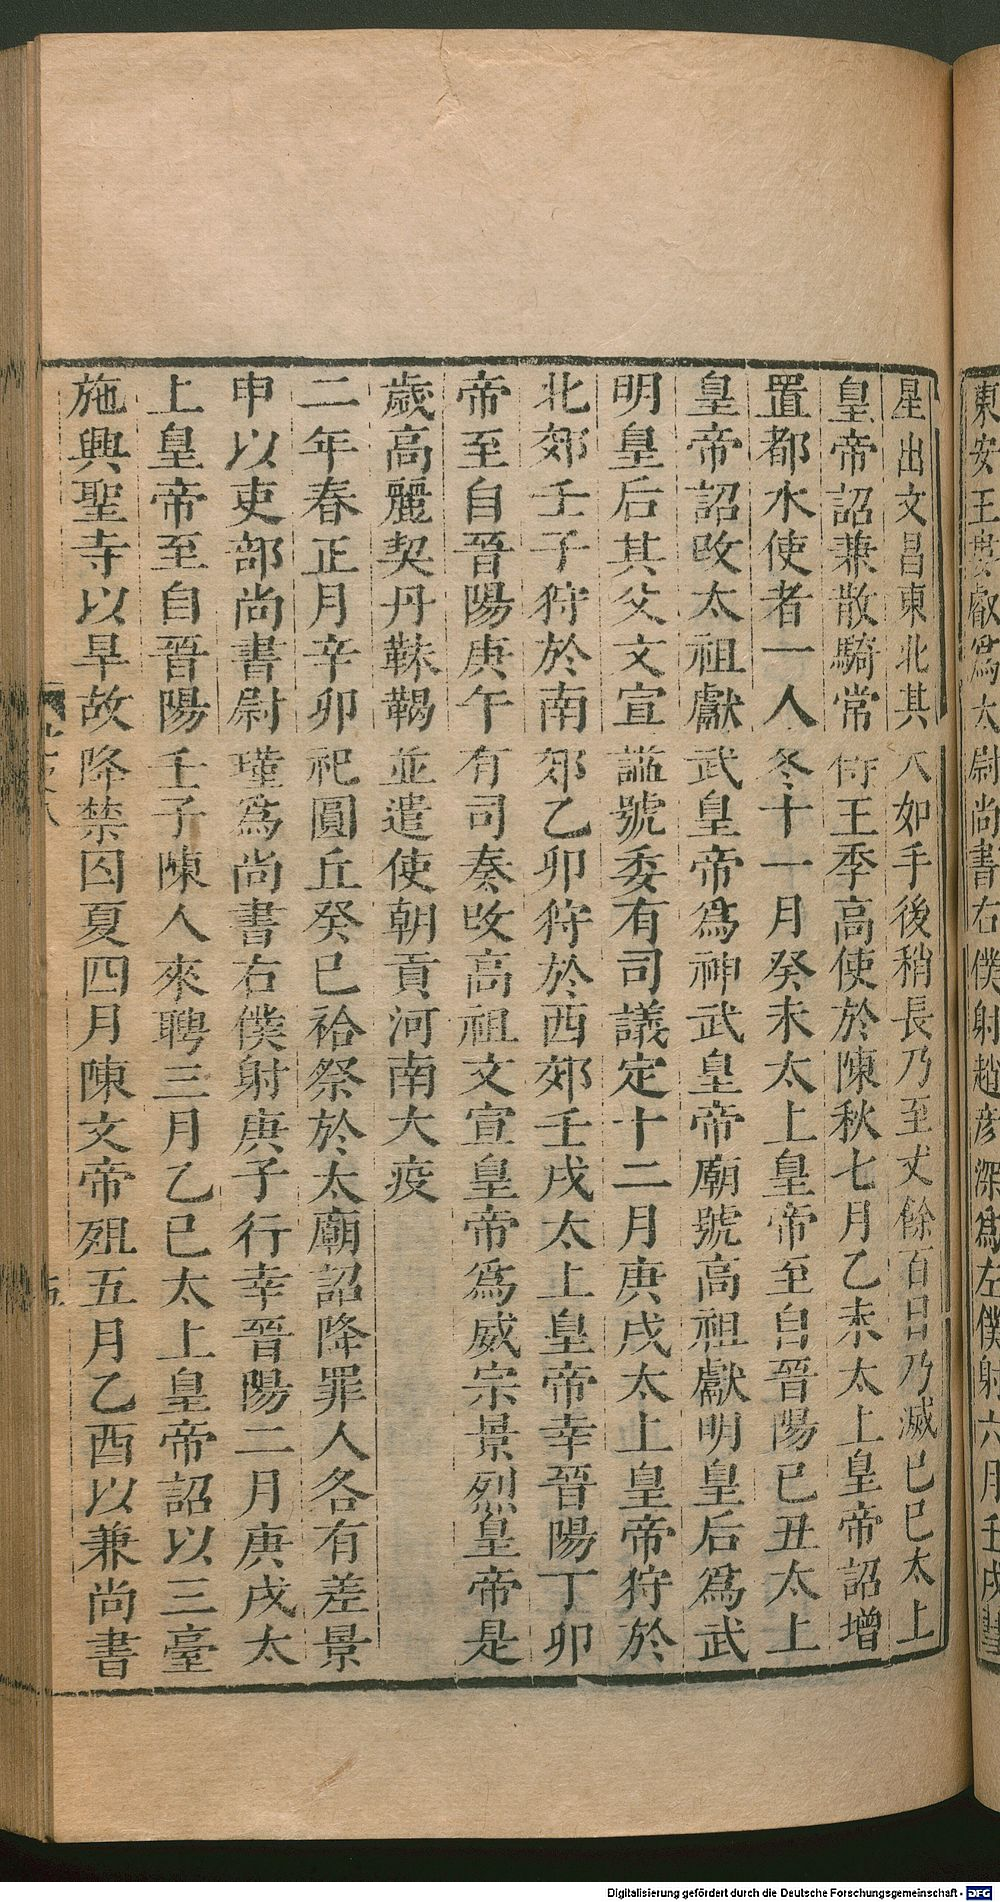 東安王婁叡爲太尉尚書右僕射趙彦深爲左僕射六月壬戌彗
星出文昌東北其大如手後稍長乃至丈餘百日乃滅已巳太上
皇帝詔兼散騎常侍王季高使於陳秋七月乙未太上皇帝詔增
置都水使者一人冬十一月癸未太上皇帝至自晉陽已丑太上
皇帝詔改太祖獻武皇帝爲神武皇帝廟號高祖獻明皇后爲武
明皇后其父文宣諡號委有司議定十二月庚戌太上皇帝狩於
北郊壬子狩於南郊乙卯狩於西郊壬戌太上皇帝幸晉陽丁卯
帝至自晉陽庚午有司奏改高祖文宣皇帝爲威宗景烈皇帝是
歲高麗契丹靺鞨並遣使朝貢河南大疫
二年春正月辛卯祀圓丘癸巳祫祭於太廟詔降罪人各有差景
申以吏部尚書尉瑾爲尚書右僕射庚子行幸晉陽二月庚戌太
上皇帝至自晉陽壬子陳人來聘三月乙巳太上皇帝詔以三臺
施興聖寺以旱故降禁囚夏四月陳文帝殂五月乙酉以兼尚書
Digitalisierung gefördert durch die Deutsche Forschungsgemeinschaft - DFG